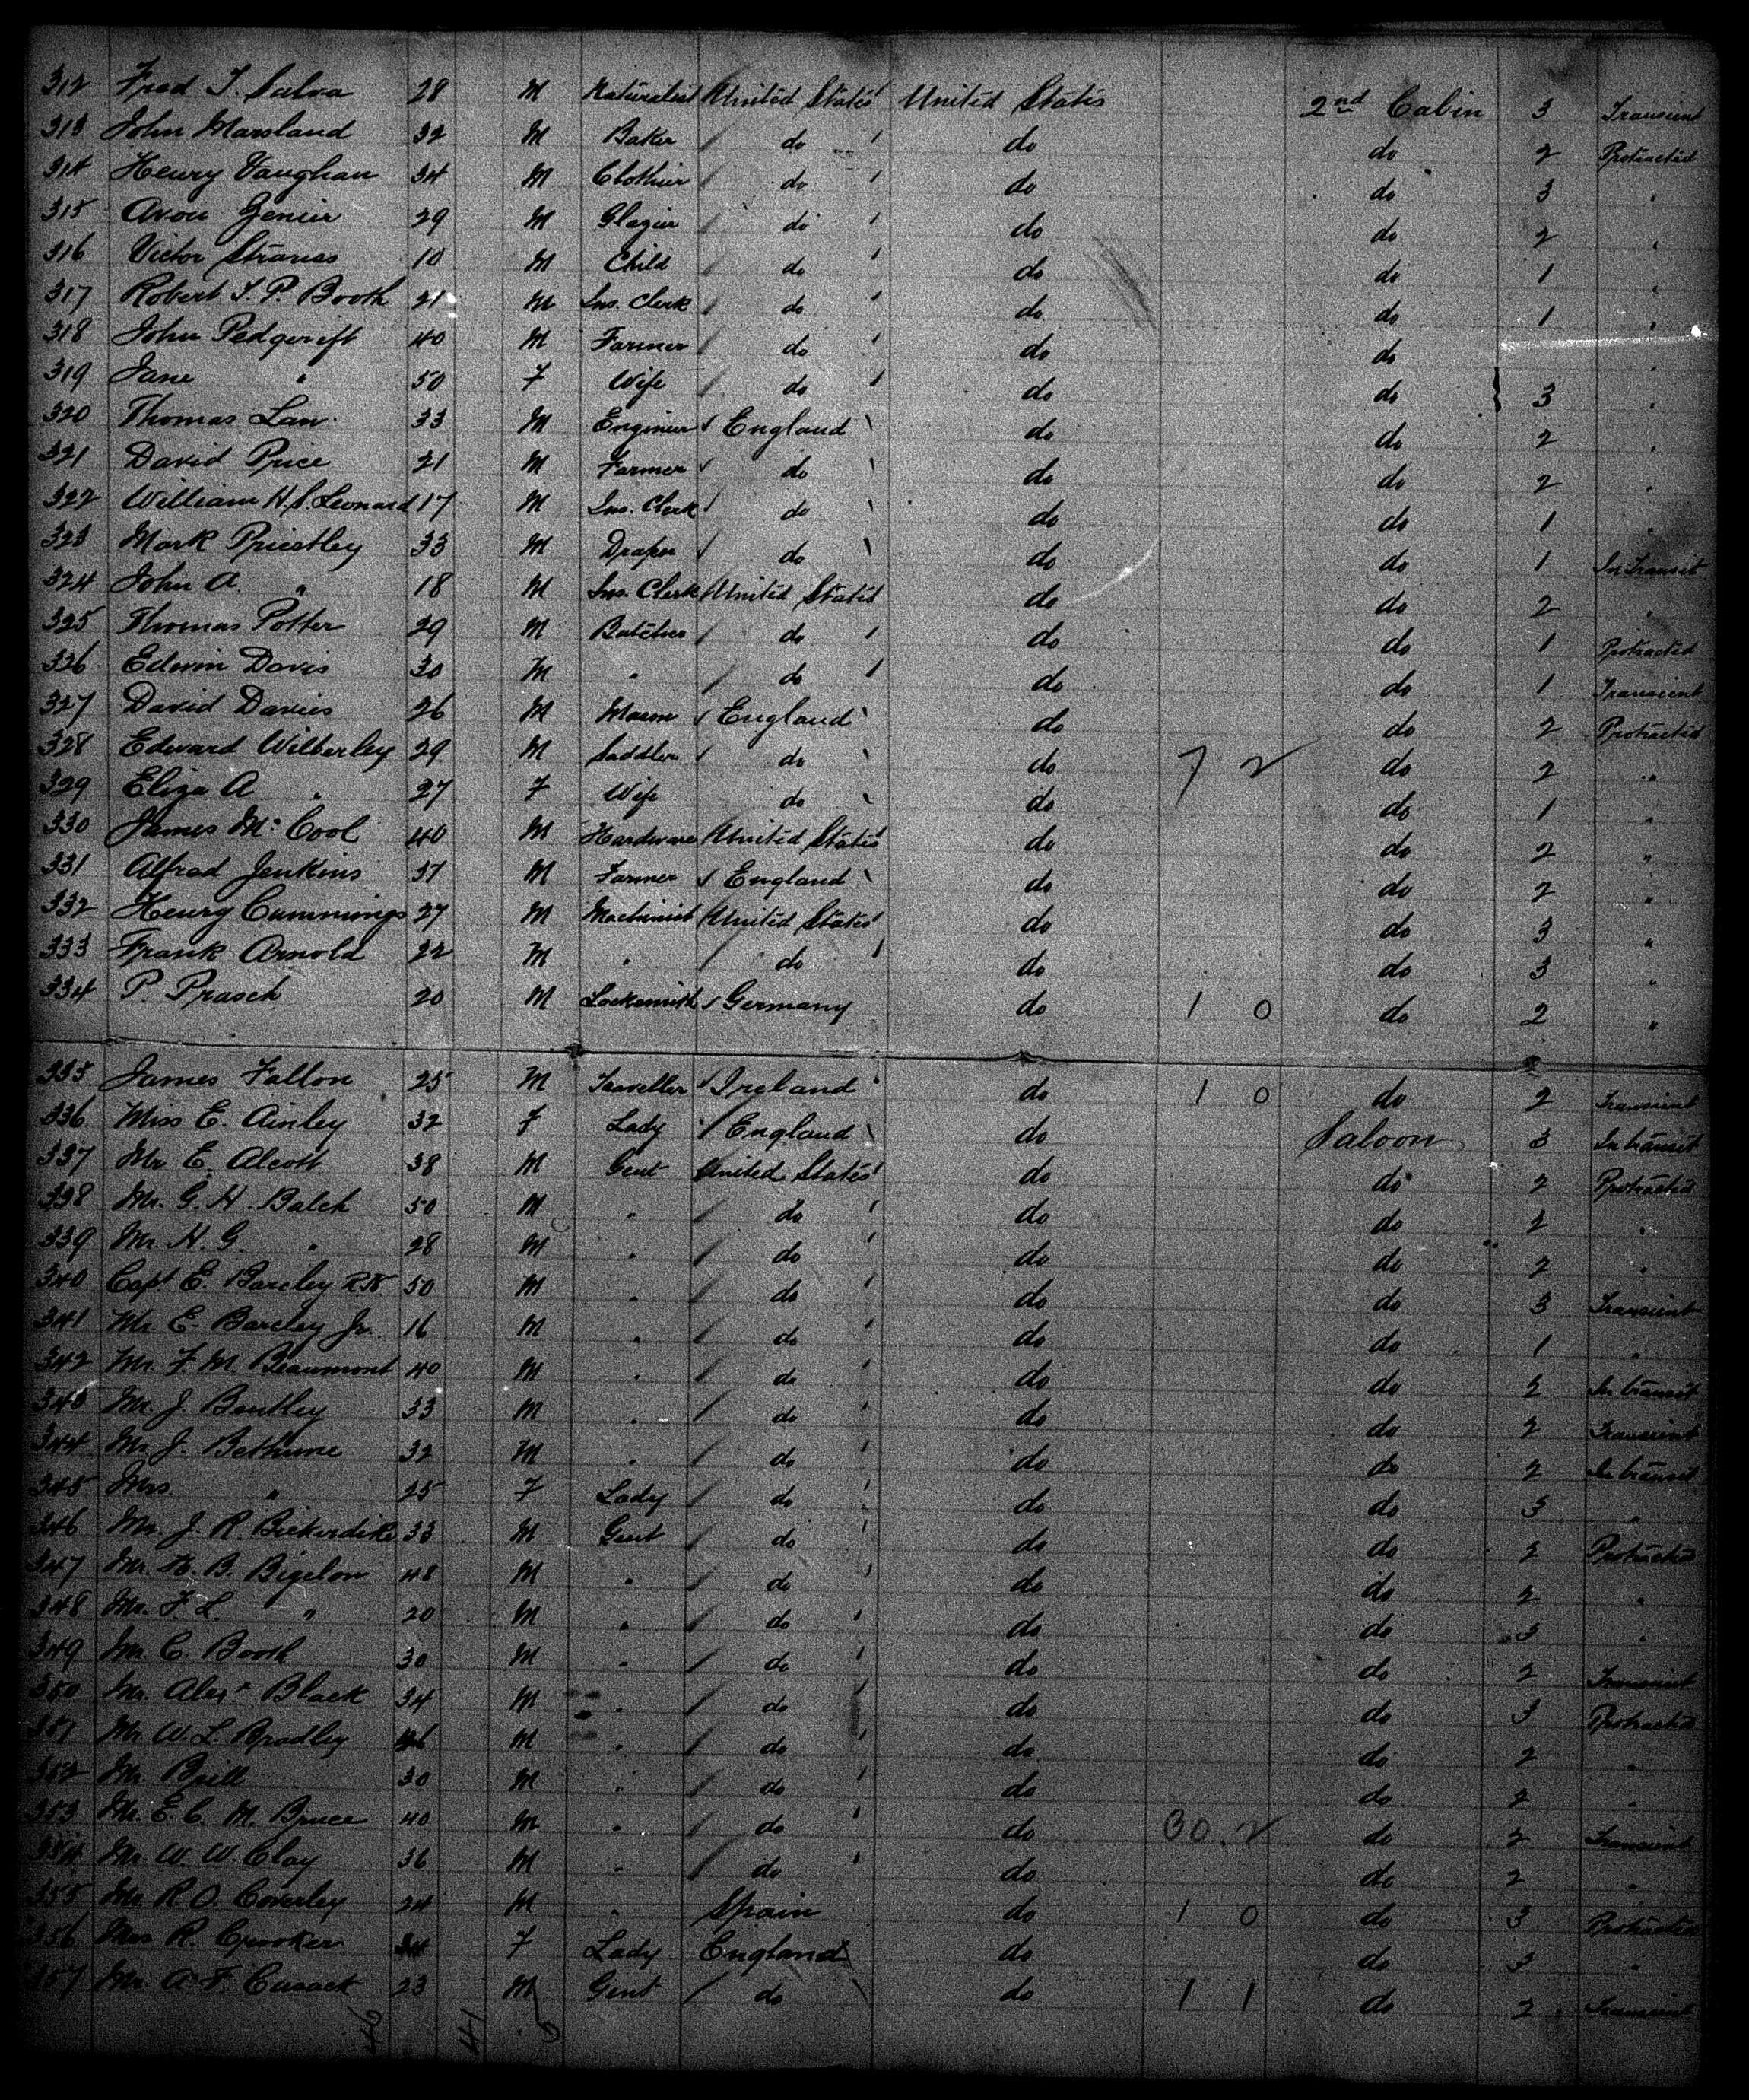 312 Fred T. Salva 28 M Naturalist United States United States 2nd Cabin 3 Transient
313 John Marsland 32 M Baker do do do 2 Protracted
314 Henry Vaughan 34 M Clothier do do do 3 "
315 Avon Genier 29 M Glazier do do do 2 "
316 Victor Strauss 10 M Child do do do 1 "
317 Robert S. P. Booth 21 M Ins. Clerk do do do 1 "
318 John Pedgrift 40 M Farmer do do do "
319 Jane " 50 F Wife do do do 3 "
320 Thomas Law 33 M Engineer England do do 2 "
321 David Price 21 M Farmer do do do 2 "
322 William H. S. Leonard 17 M Ins. Clerk do do do 1 "
323 Mark Priestley 33 M Draper do do do 1 In Transit
324 John A. " 18 M Ins. Clerk United States do do 2 "
325 Thomas Potter 29 M Butcher do do do 1 Protracted
326 Edwin Davis 30 M " do do do 1 Transient
327 David Davies 26 M Mason England do do 2 Protracted
328 Edward Wilberley 29 M Saddler do do 7 2 do 2 "
329 Eliza A " 27 F Wife do do do 1 "
330 James Mc Cool 40 M Hardware United States do do 2 "
331 Alfred Jenkins 37 M Farmer England do do 2 "
332 Henry Cummings 27 M Machinist United States do do 3 "
333 Frank Arnold 22 M " do do do 3 "
334 P. Prasch 20 M Locksmith Germany do 1 0 do 2 "
335 James Fallon 25 M Traveller Ireland do 1 0 do 2 Transient
336 Miss E. Ainley 32 F Lady England do Saloon 3 In transit
337 Mr E. Alcott 38 M Gent United States do do 2 Protracted
338 Mr. G. H. Balch 50 M " do do do 2 "
339 Mr. H. G. " 28 M " do do do 2 "
340 Capt E. Barcley R.N. 50 M " do do do 3 Transient
341 Mr. E. Barcley Jr. 16 M " do do do 1 "
342 Mr. F. M. Beaumont 40 M " do do do 2 In transit
343 Mr J. Bentley 33 M " do do do 2 Transient
344 Mr J. Bethune 32 M " do do do 2 In transit
345 Mrs " 25 F Lady do do do 3 "
346 Mr. J. R. Bickerdike 33 M Gent do do do 2 Protracted
347 Mr. H. B. Bigelow 48 M " do do do 2 "
348 Mr. F. L. " 20 M " do do do 3 "
349 Mr C. Booth 30 M " do do do 2 Transient
350 Mr. Alexr Black 34 M " do do do 3 Protracted
351 Mr. W. L. Bradley M " do do do 2 "
352 Mr. Brill 30 M " do do do 2 "
353 Mr. E. C. M. Bruce 40 M " do do 30 2 do 2 Transient
354 Mr. W. W. Clay 36 M " do do do 2 "
355 Mr. R. O. Coverley 24 M " Spain do 1 0 do 3 Protracted
356 Mrs R. Crooker F Lady England do do 3 "
357 Mr. A. F. Cusack 23 M Gent do do 1 1 do 2 Transient
46 41 5